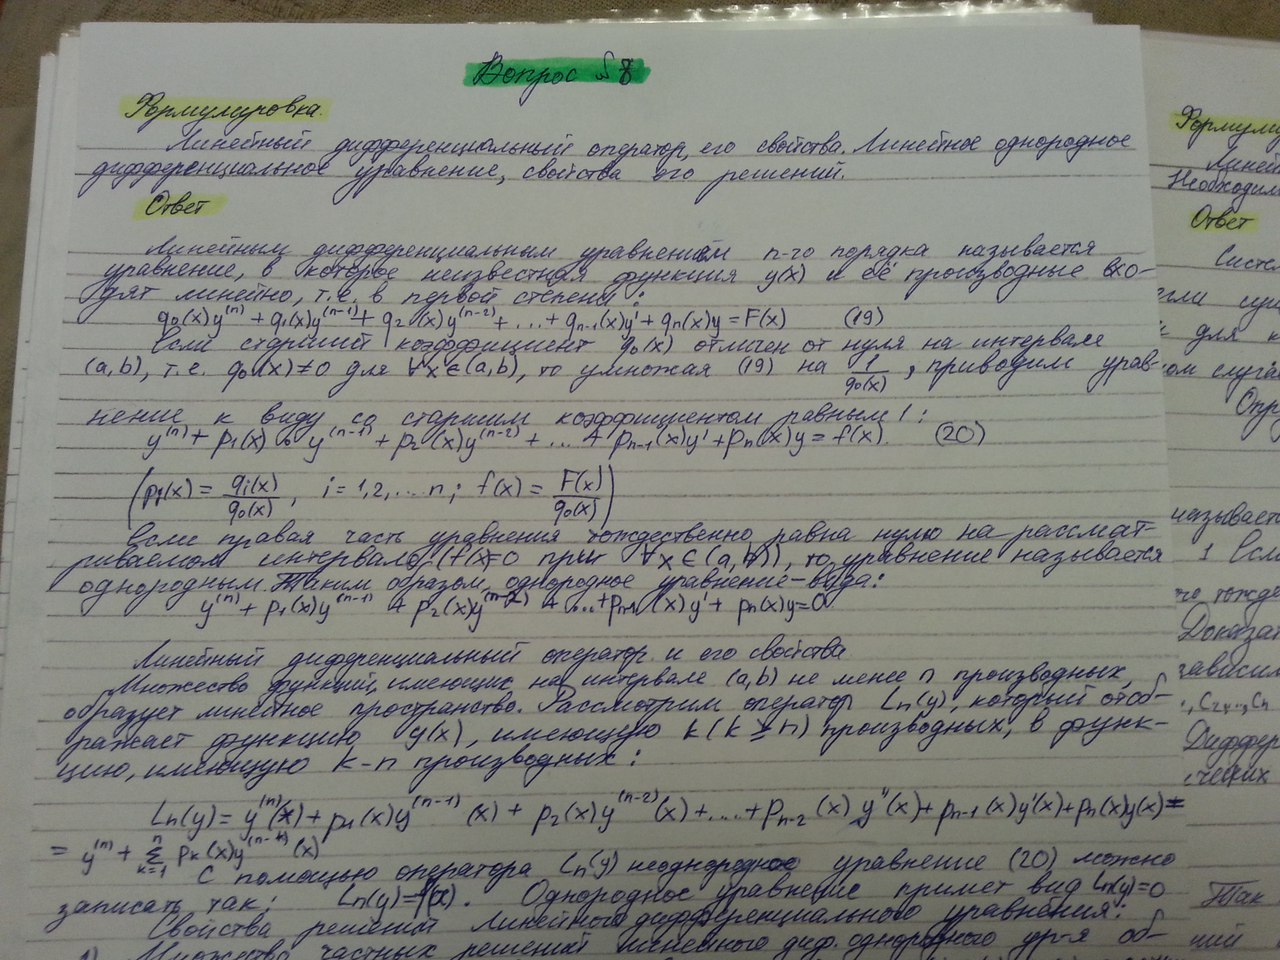 Вопрос №8
Формулировка.
Линейный дифференциальный оператор, его свойства. Линейное однородное
дифференциальное уравнение, свойства его решений.
Ответ
Линейным дифференциальным уравнением n-го порядка называется
уравнение, в которое неизвестная функция y(x) и её производные вхо-
дят линейно, т.е. в первой степени:
q₀(x)y⁽ⁿ⁾ + q₁(x)y⁽ⁿ⁻¹⁾ + q₂(x)y⁽ⁿ⁻²⁾ + ... + qₙ₋₁(x)y' + qₙ(x)y = F(x) (19)
Если старший коэффициент q₀(x) отличен от нуля на интервале
(a,b), т.е. q₀(x)≠0 для ∀x∈(a,b), то умножая (19) на 1/q₀(x), приводим урав-
нение к виду со старшим коэффициентом равным 1:
y⁽ⁿ⁾ + p₁(x) y⁽ⁿ⁻¹⁾ + p₂(x)y⁽ⁿ⁻²⁾ + ... + pₙ₋₁(x)y' + pₙ(x)y = f(x). (20)
(pᵢ(x) = qᵢ(x)/q₀(x), i=1,2,...n; f(x) = F(x)/q₀(x))
Если правая часть уравнения тождественно равна нулю на рассмат-
риваемом интервале (f(x)=0 при ∀x∈(a,b)), то уравнение называется
однородным. Таким образом, однородное уравнение - вида:
y⁽ⁿ⁾ + p₁(x)y⁽ⁿ⁻¹⁾ + p₂(x)y⁽ⁿ⁻²⁾ + ... + pₙ₋₁(x)y' + pₙ(x)y=0
Линейный дифференциальный оператор и его свойства
Множество функций, имеющих на интервале (a,b) не менее n производных,
образует линейное пространство. Рассмотрим оператор Lₙ(y), который отоб-
ражает функцию y(x), имеющую k (k ≥ n) производных, в функ-
цию, имеющую k-n производных:
Lₙ(y) = y⁽ⁿ⁾(x) + p₁(x)y⁽ⁿ⁻¹⁾(x) + p₂(x)y⁽ⁿ⁻²⁾(x) + ... + pₙ₋₂(x) y''(x) + pₙ₋₁(x)y'(x) + pₙ(x)y(x) =
= y⁽ⁿ⁾ + Σₖ₌₁ⁿ pₖ(x)y⁽ⁿ⁻ᵏ⁾(x)
С помощью оператора Lₙ(y) неоднородное уравнение (20) можно
записать так: Lₙ(y)=f(x). Однородное уравнение примет вид Lₙ(y)=0
Свойства решений линейного дифференциального уравнения:
1) Множество частных решений линейного диф. однородного ур-я об-
Линей
Необходим
Ответ
Систе
для к
ом случа
Опр
называетс
1 Если
Доказат
зависим
Диффер
ческих
Так
ний